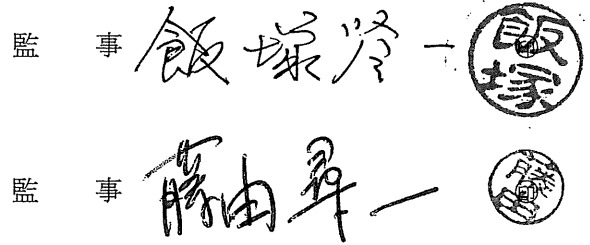 監 事 飯塚 一 飯塚
監 事 藤田尋一 藤田